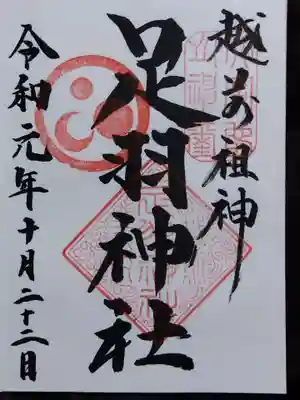 越前祖神
足羽神社
令和元年十月二十二日